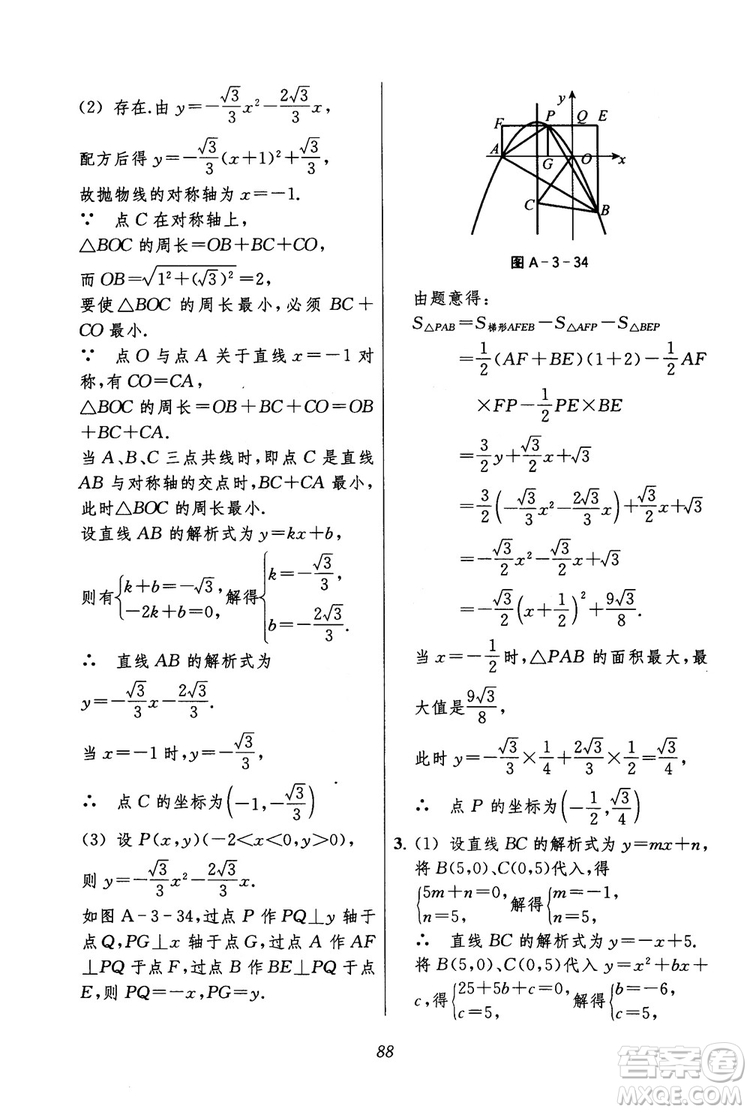 (2) 存在.由 y=-\frac{\sqrt{3}}{3}x²-\frac{2\sqrt{3}}{3}x,
配方后得 y=-\frac{\sqrt{3}}{3}(x+1)²+\frac{\sqrt{3}}{3}
故抛物线的对称轴为 x=-1.
∵ 点 C 在对称轴上,
△BOC 的周长=OB+BC+CO,
而 OB=\sqrt{1²+(\sqrt{3})²}=2,
要使△BOC 的周长最小,必须 BC+
CO 最小.
∵ 点 O 与点 A 关于直线 x=-1 对
称,有 CO=CA,
△BOC 的周长=OB+BC+CO=OB
+BC+CA.
当 A、B、C 三点共线时,即点 C 是直线
AB 与对称轴的交点时,BC+CA 最小,
此时△BOC 的周长最小.
设直线 AB 的解析式为 y=kx+b,
则有{k+b=-\sqrt{3}, -2k+b=0, 解得{k=-\frac{\sqrt{3}}{3}, b=-\frac{2\sqrt{3}}{3}.
∴ 直线 AB 的解析式为
y=-\frac{\sqrt{3}}{3}x-\frac{2\sqrt{3}}{3}.
当 x=-1 时,y=-\frac{\sqrt{3}}{3},
∴ 点 C 的坐标为(-1,-\frac{\sqrt{3}}{3})
(3) 设 P(x,y)(-2<x<0,y>0),
则 y=-\frac{\sqrt{3}}{3}x²-\frac{2\sqrt{3}}{3}x.
如图 A-3-34,过点 P 作 PQ⊥y 轴于
点 Q,PG⊥x 轴于点 G,过点 A 作 AF
⊥PQ 于点 F,过点 B 作 BE⊥PQ 于点
E,则 PQ=-x,PG=
y
F P Q E
A G O x
C B
图 A-3-34
由题意得:
S△PAB=S梯形AFEB-S△AFP-S△BEP
=\frac{1}{2}(AF+BE)(1+2)-\frac{1}{2}AF
×FP-\frac{1}{2}PE×BE
=\frac{3}{2}y+\frac{\sqrt{3}}{2}x+\sqrt{3}
=\frac{3}{2}(-\frac{\sqrt{3}}{3}x²-\frac{2\sqrt{3}}{3}x)+\frac{\sqrt{3}}{2}x+\sqrt{3}
=-\frac{\sqrt{3}}{2}x²-\frac{\sqrt{3}}{2}x+\sqrt{3}
=-\frac{\sqrt{3}}{2}(x+\frac{1}{2})²+\frac{9\sqrt{3}}{8}.
当 x=-\frac{1}{2}时,△PAB 的面积最大,最
大值是\frac{9\sqrt{3}}{8},
此时 y=-\frac{\sqrt{3}}{3}×\frac{1}{4}+\frac{2\sqrt{3}}{3}×\frac{1}{2}=\frac{\sqrt{3}}{4},
∴ 点 P 的坐标为(-\frac{1}{2},\frac{\sqrt{3}}{4})
3. (1) 设直线 BC 的解析式为 y=mx+n,
将 B(5,0)、C(0,5)代入,得
{5m+n=0, n=5, 解得{m=-1, n=5,
∴ 直线 BC 的解析式为 y=-x+5.
将 B(5,0)、C(0,5)代入 y=x²+bx+
c,得{25+5b+c=0, c=5, 解得{b=-6, c=5,
88
答案圈